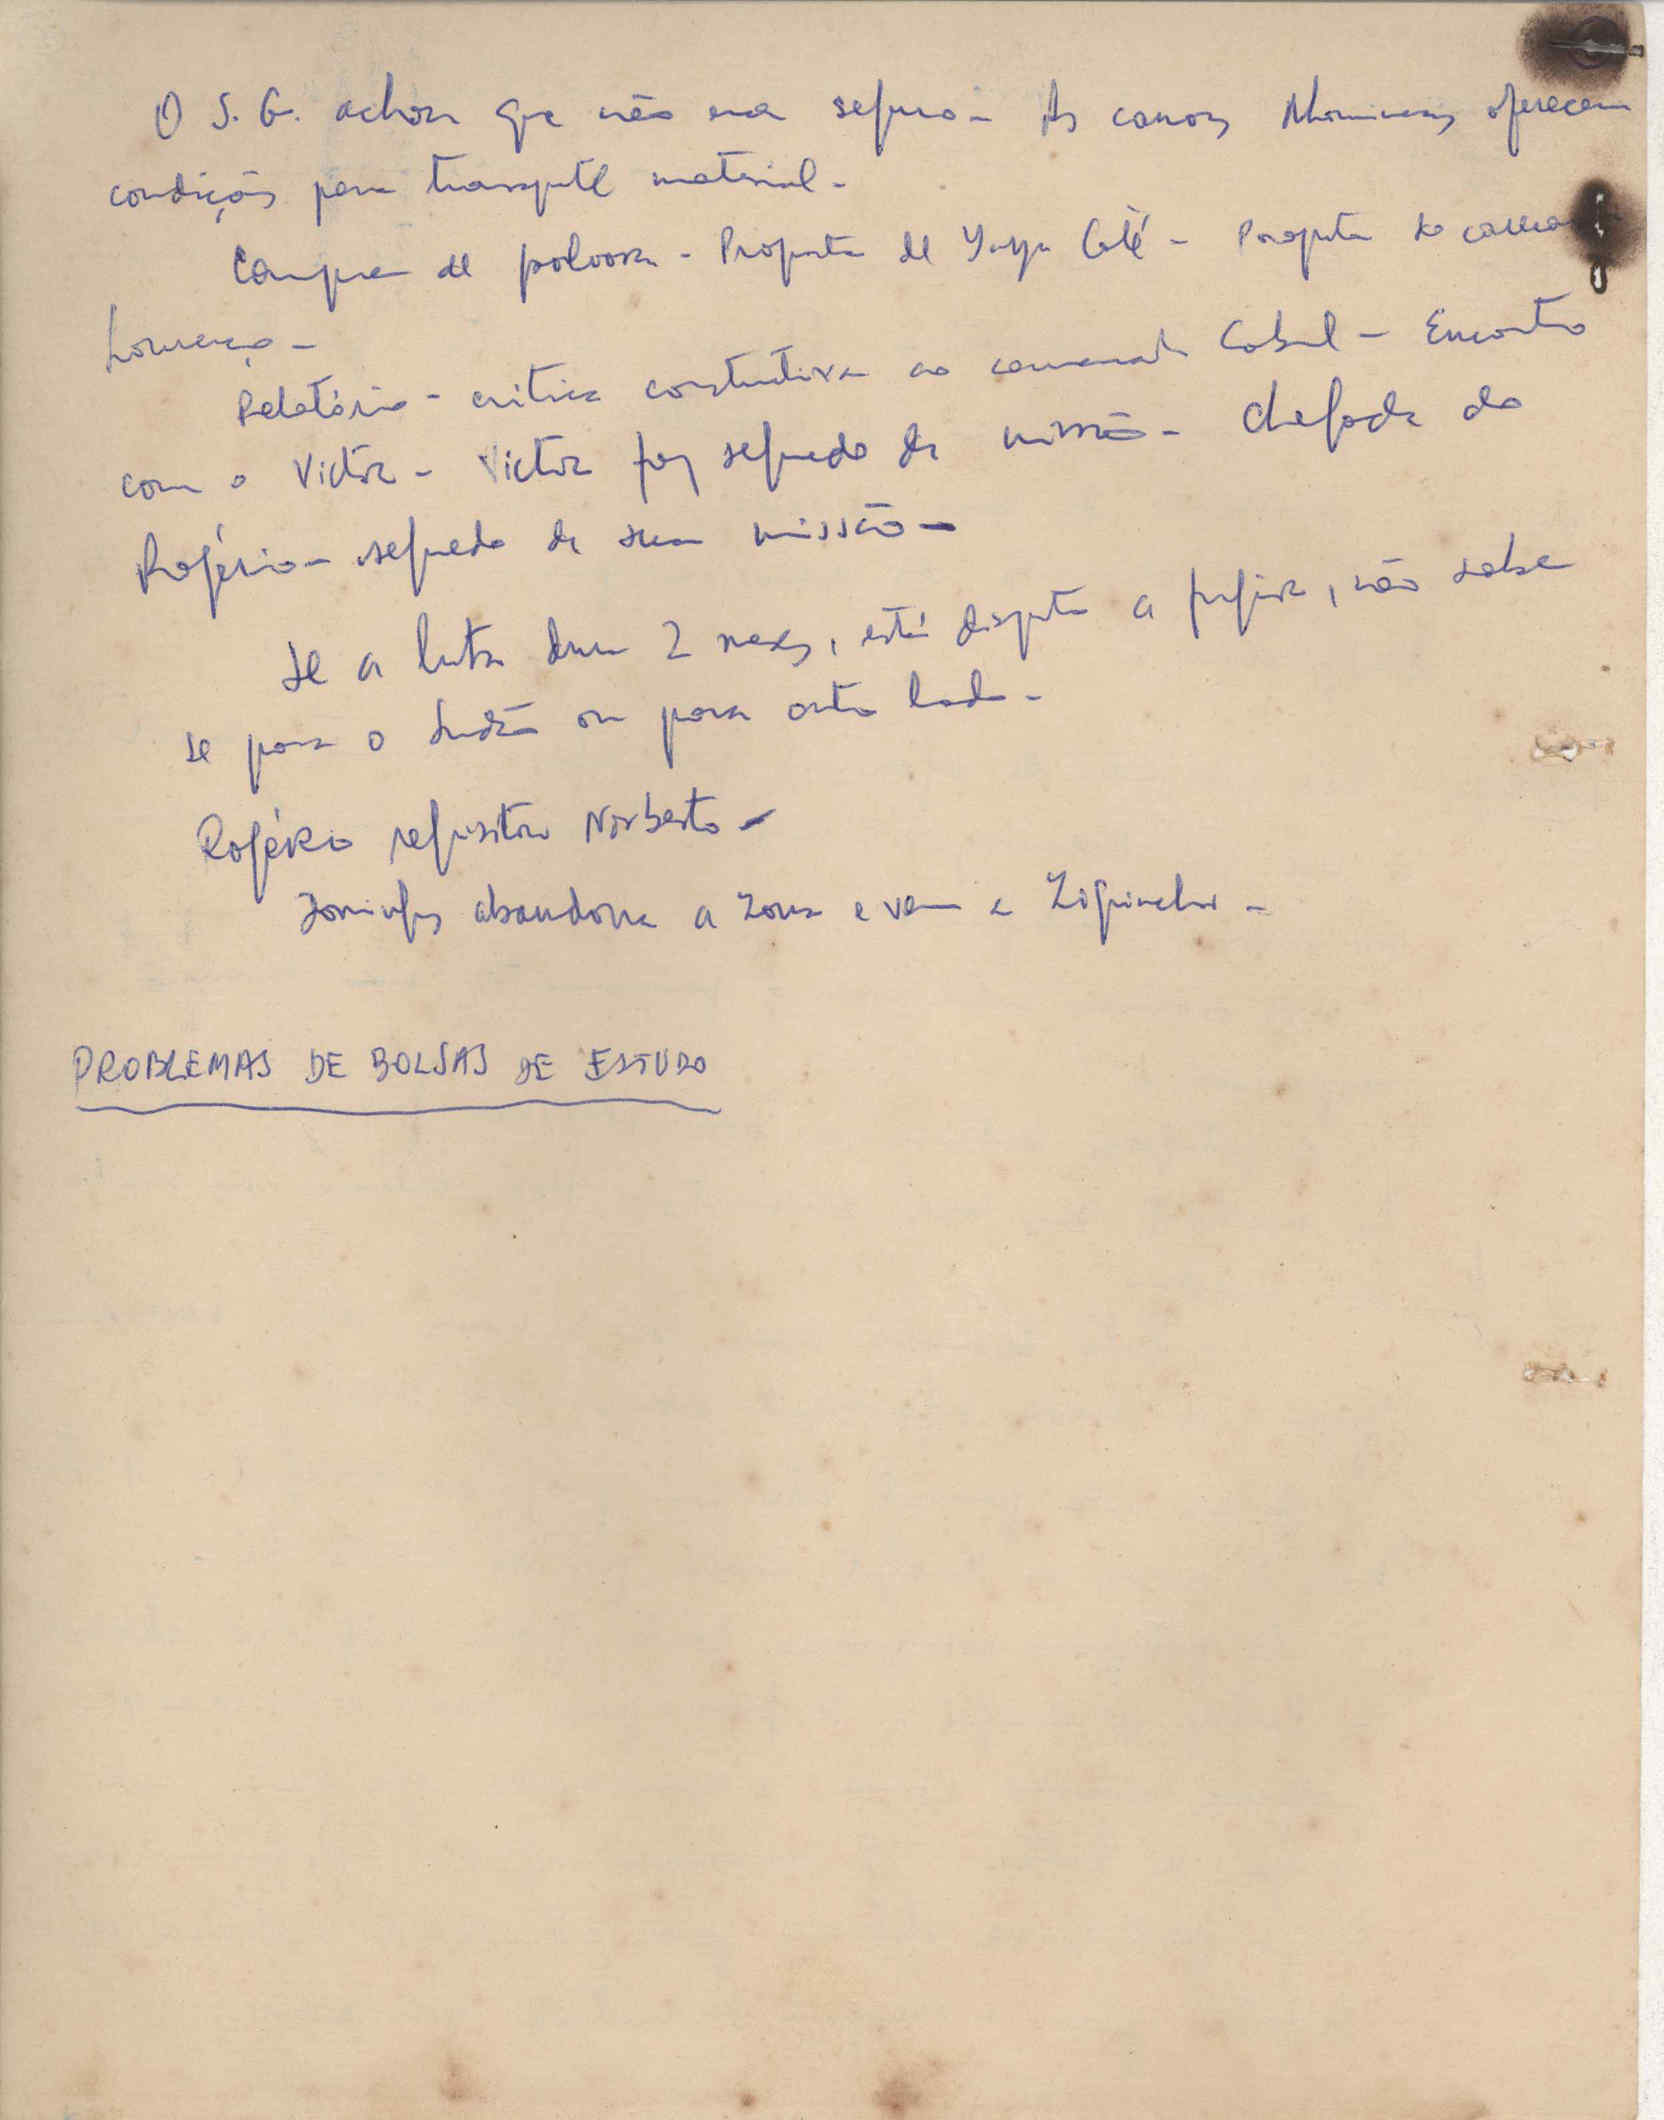 O S. G. achou que não era seguro - As canoas Nhomincas oferecem
condições para transporte material -
Compra de polvora - Proposta de Yaya Coté - Proposta do camarada
Lourenço -
Relatório - critica construtiva ao camarada Cabral - Encontro
com o Victor - Victor faz segredo da missão - Chegada do
Rogério - segredo da sua missão -
Se a luta dura 2 meses, está disposto a fugir, não sabe
se para o Sudão ou para outro lado -
Rogério requisitou Norberto -
Domingos abandona a zona e vem a Ziguinchor -
PROBLEMAS DE BOLSAS DE ESTUDO